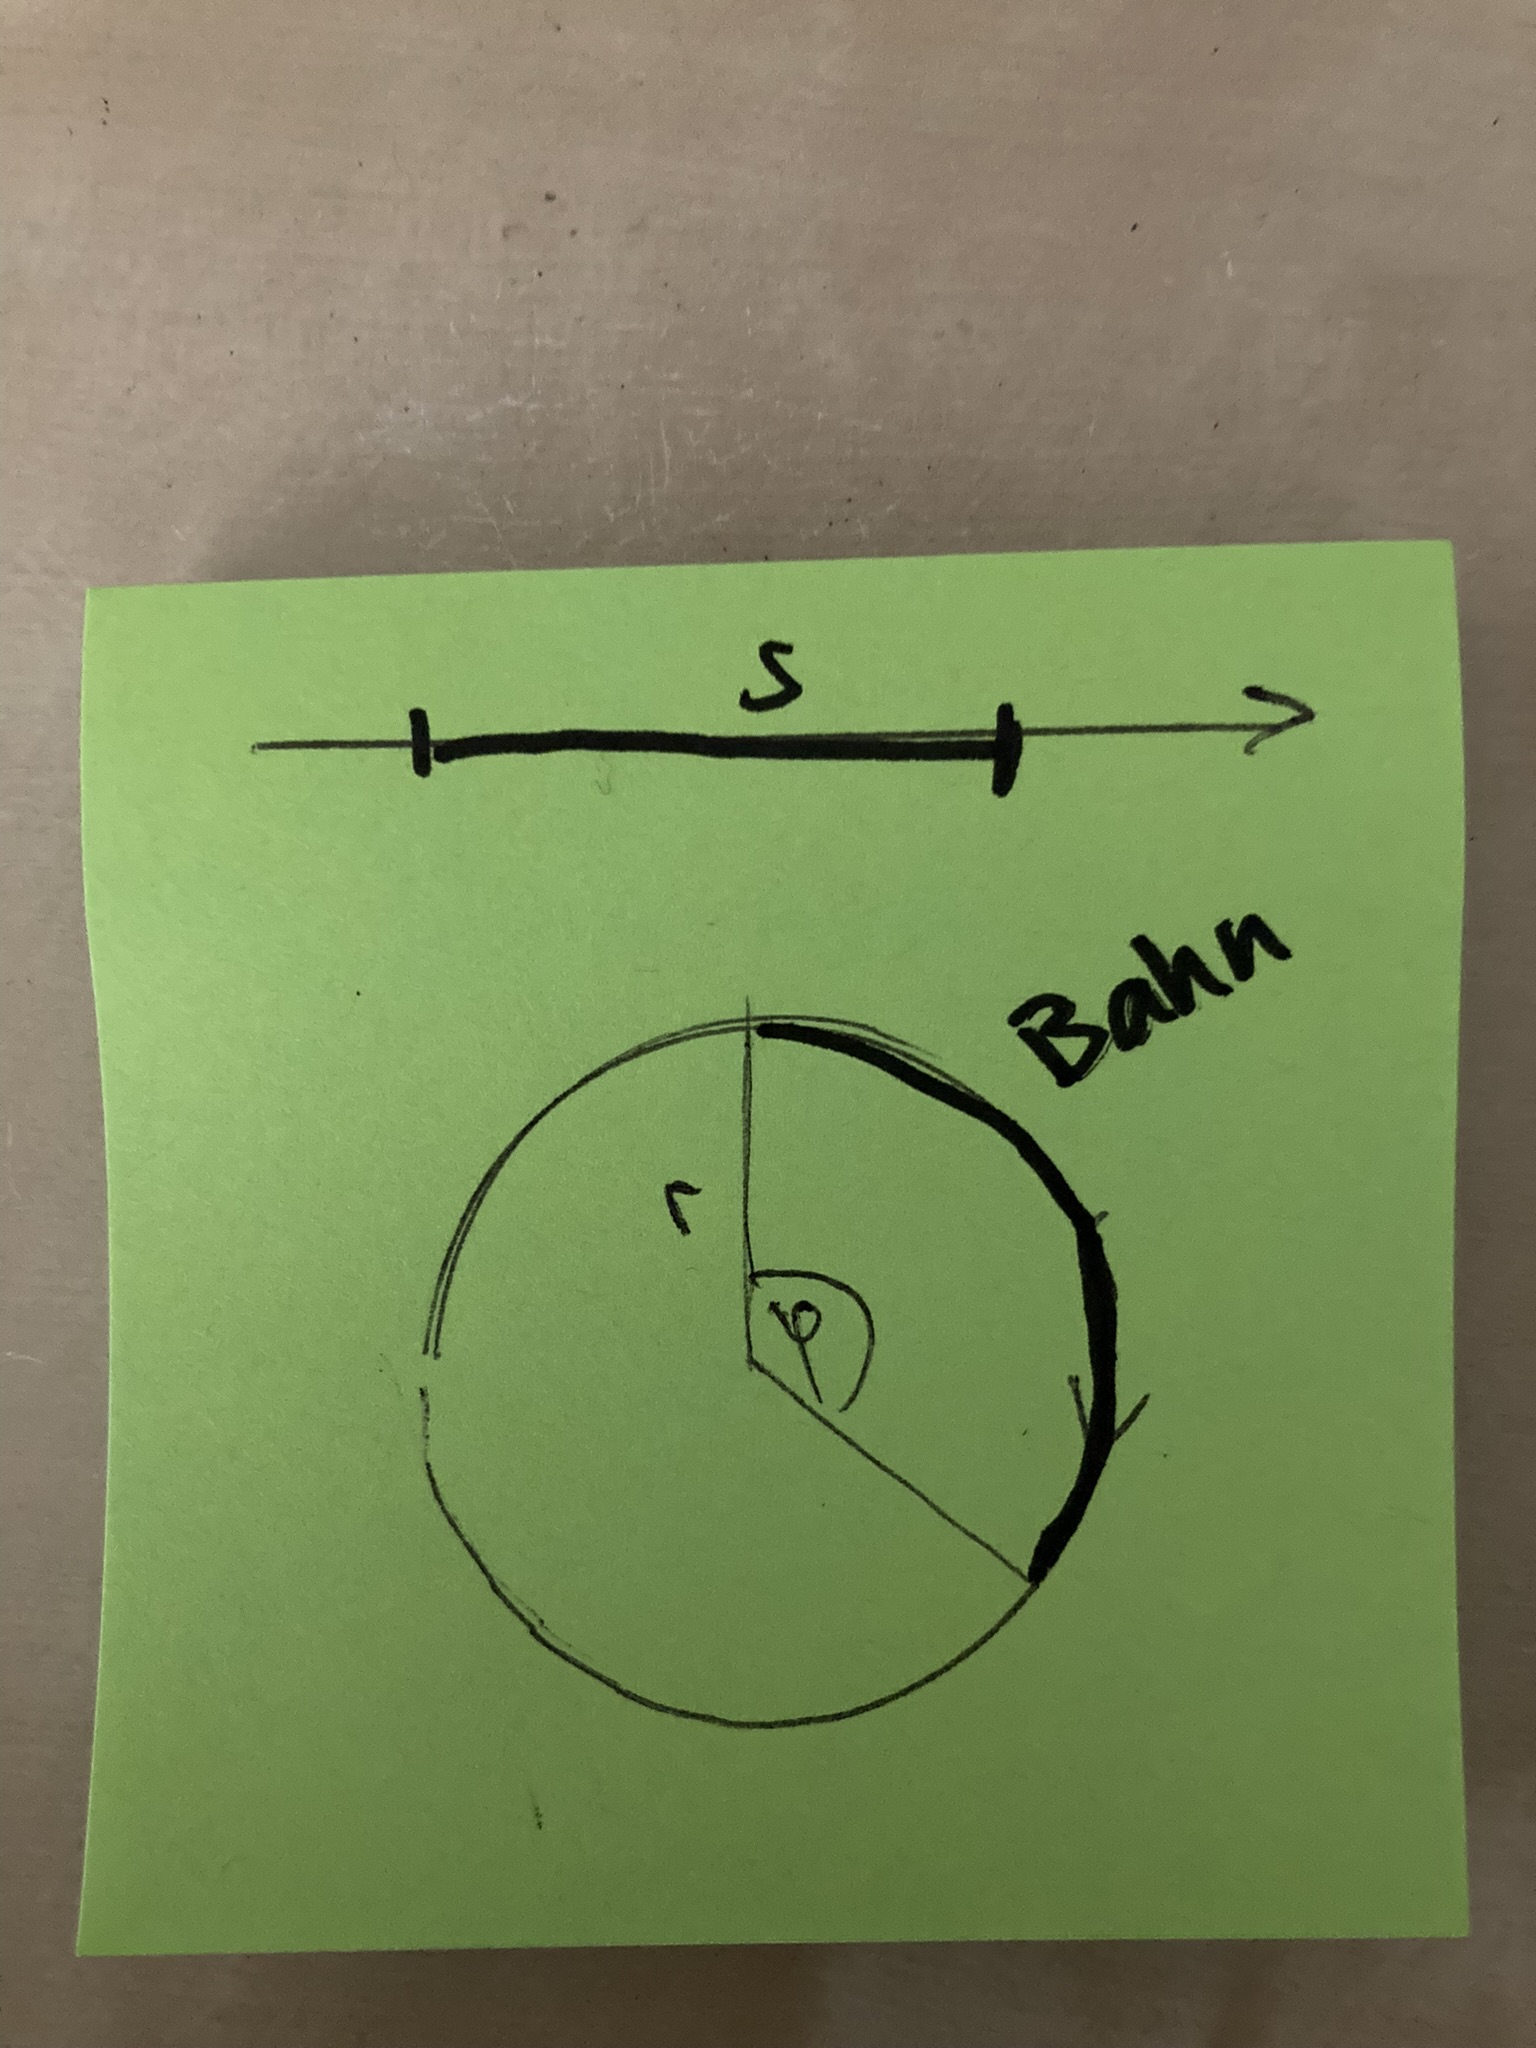 s
Bahn
r
φ